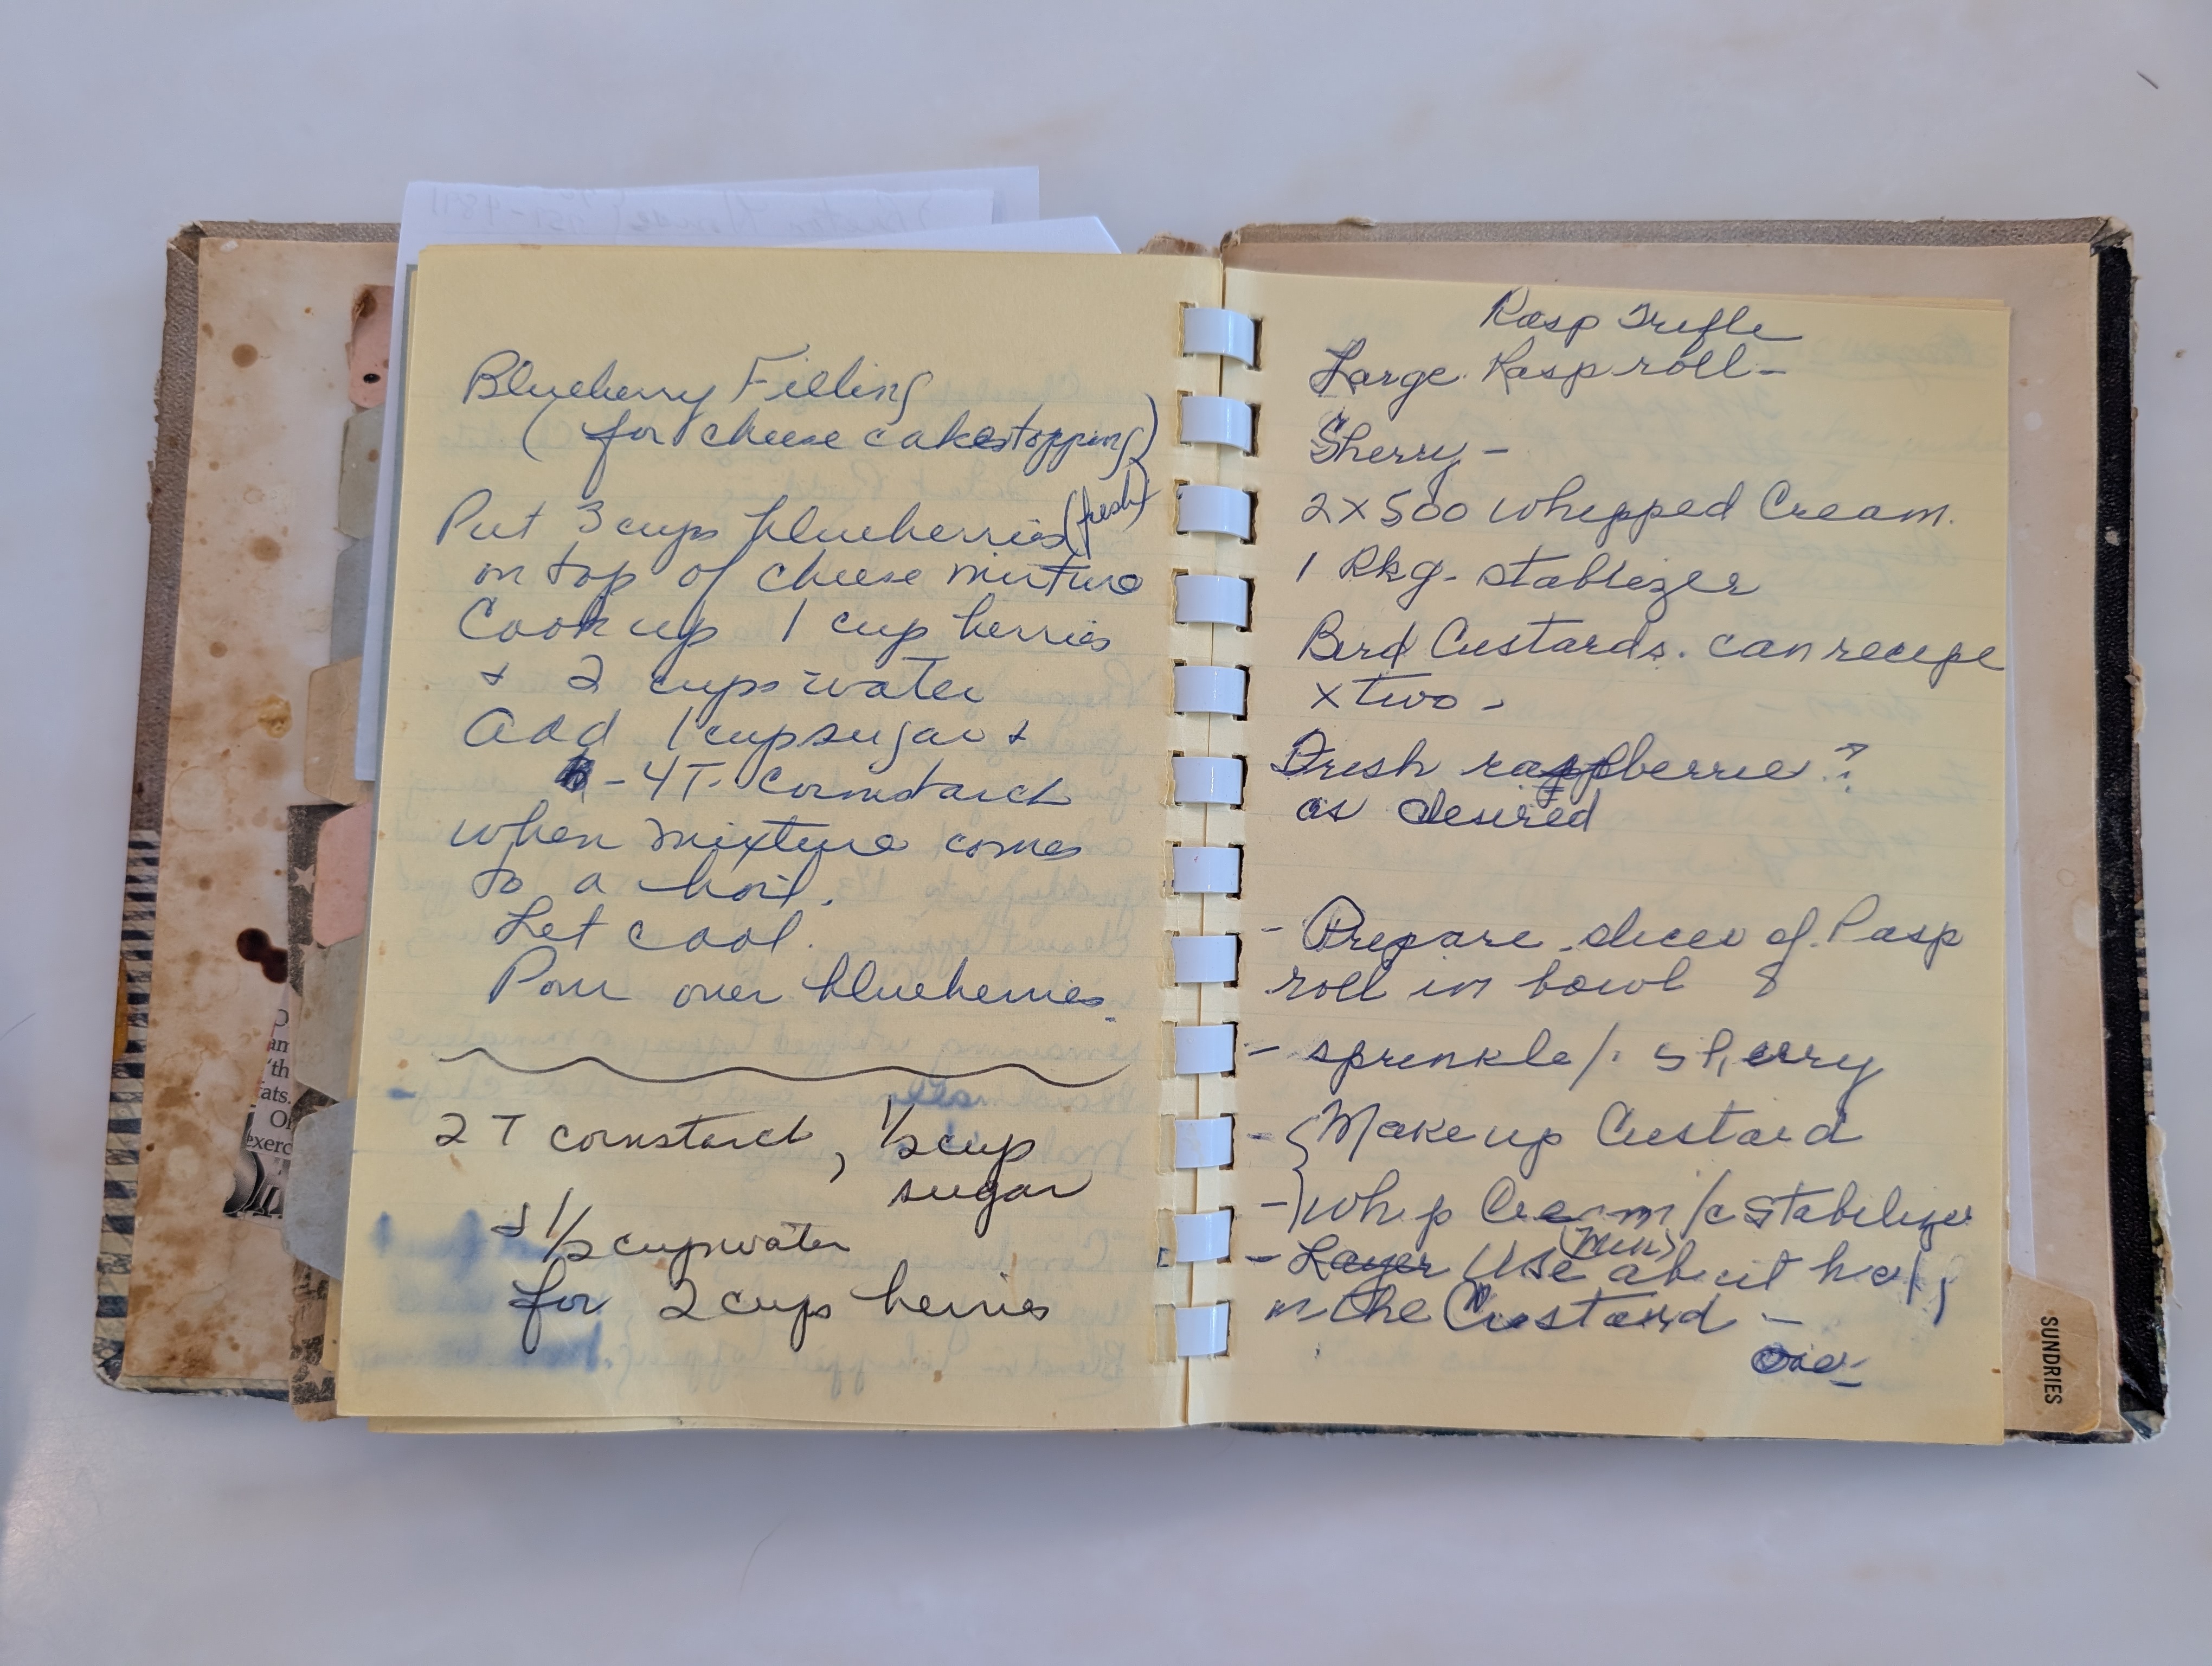 Blueberry Filling
(for cheese cakes topping)
Put 3 cups blueberries (fresh)
on top of cheese mixture
Cook up 1 cup berries
+ 2 cups water
Add 1 cup sugar +
- 4T. Cornstarch
when mixture comes
to a boil.
Let cool.
Pour over blueberries.
2 T cornstarch, 1/2 cup
sugar
+ 1/2 cup water
for 2 cups berries
Rasp Trifle
Large Rasp roll -
Sherry -
2 x 500 whipped Cream.
1 Pkg. stablizer
Bird Custards. can recipe
x two -
Fresh raspberrie ?
as desired
- Prepare slices of Rasp
roll in bowl &
- sprinkle /. sherry
- { Make up Custard
- } Whip Cream /c stabilizer
- Layer Use (mix) about half
in the Custard -
SUNDRIES
an
'th
ats.
exerc